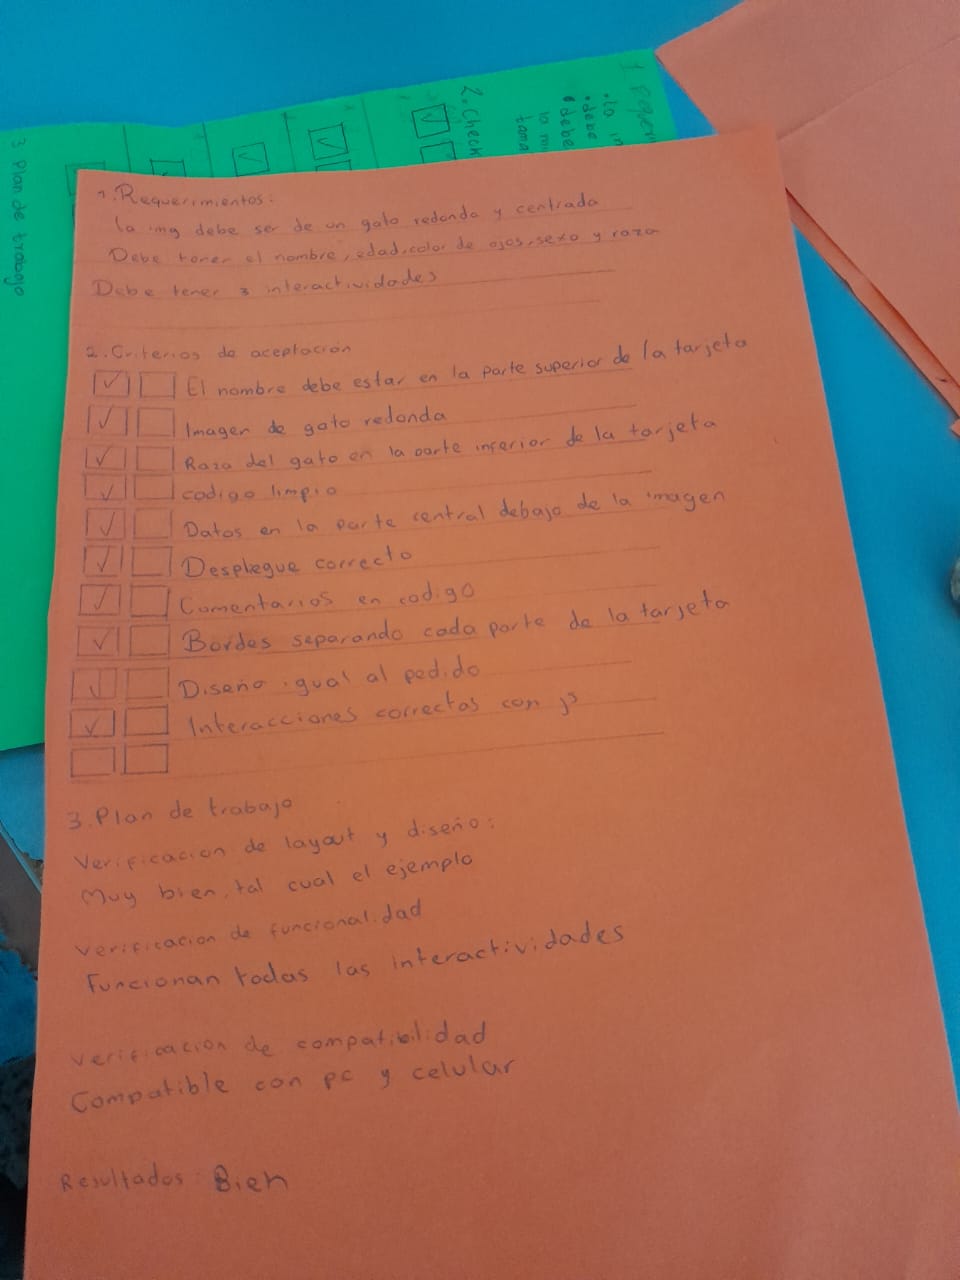 1 Requeri
• la in
• debe
• debe
la mi
tama
2. Check
3 Plan de trabajo
1. Requerimientos:
la img debe ser de un gato redonda y centrada
Debe tener el nombre, edad, color de ojos, sexo y raza
Debe tener 3 interactividades
2. Criterios de aceptacion
El nombre debe estar en la parte superior de la tarjeta
Imagen de gato redonda
Raza del gato en la parte inferior de la tarjeta
codigo limpio
Datos en la parte central debajo de la imagen
Despliegue correcto
Comentarios en codigo
Bordes separando cada parte de la tarjeta
Diseño igual al pedido
Interacciones correctas con js
3. Plan de trabajo
Verificacion de layout y diseño:
Muy bien, tal cual el ejemplo
Verificacion de funcionalidad
Funcionan todas las interactividades
Verificacion de compatibilidad
Compatible con pc y celular
Resultados: Bien